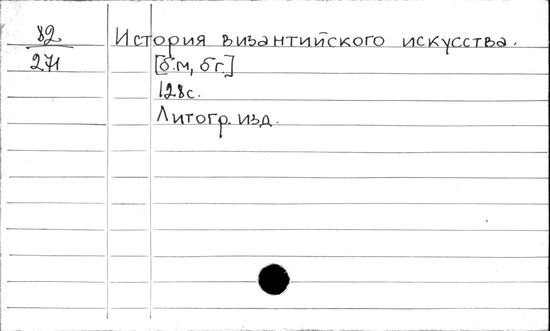 82 История византийского искусства.
271 [б.м, б г.]
128 с.
Литогр. изд.